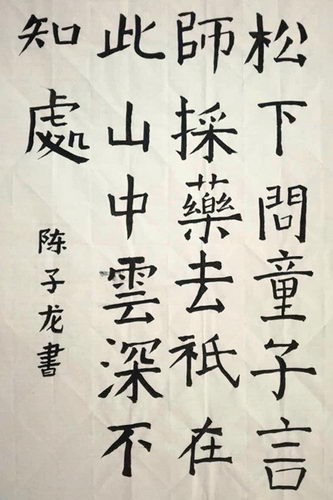 松下問童子言
師採藥去祇在
此山中雲深不
知處
陈子龙書